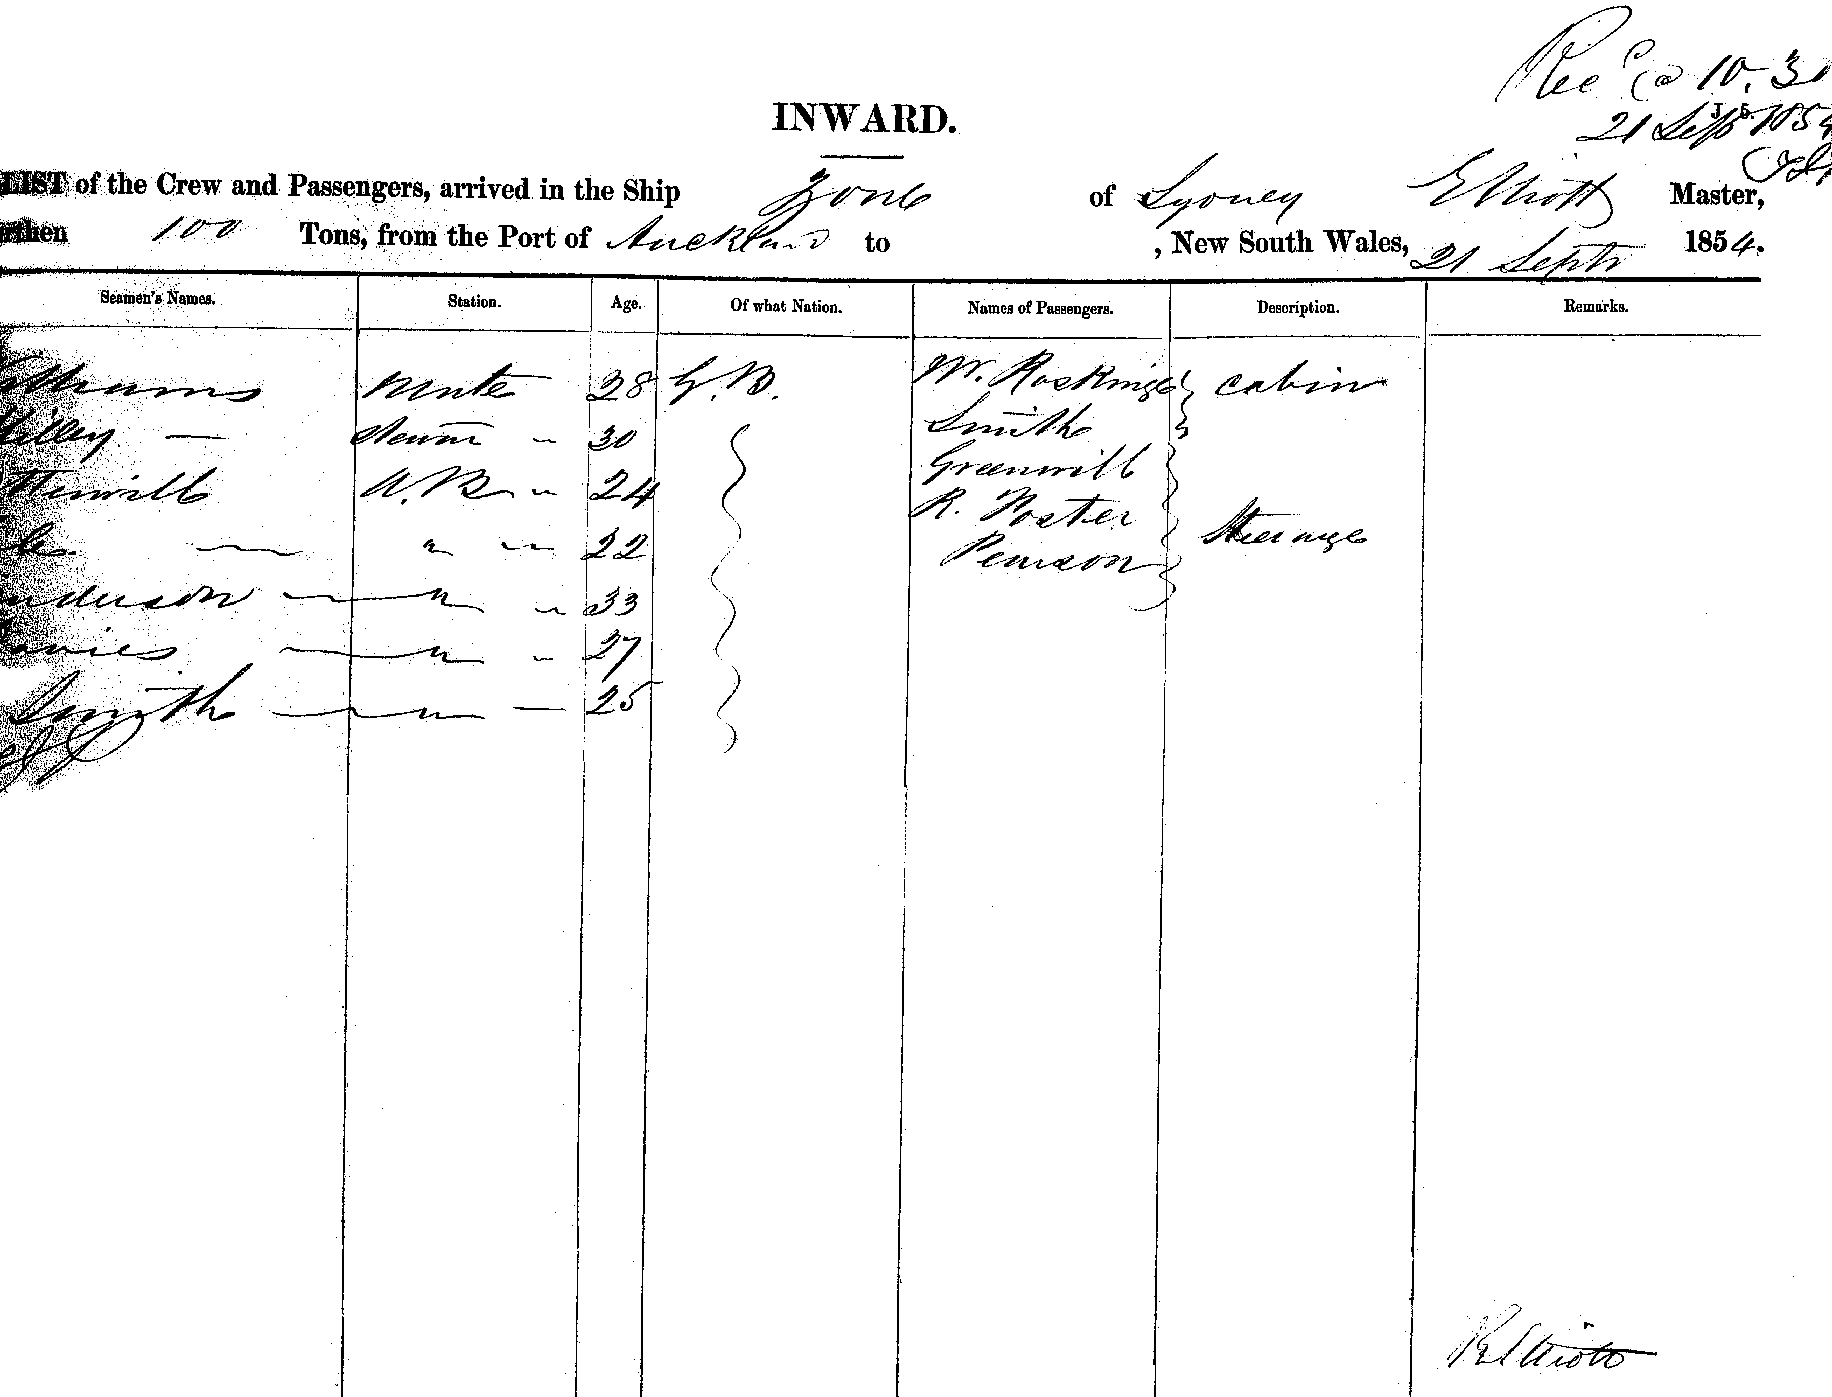 Rec^d @ 10.30
21 Sept 1854
INWARD.
LIST of the Crew and Passengers, arrived in the Ship Zone of Sydney Elliott Master,
rthen 100 Tons, from the Port of Auckland to , New South Wales, 21 Septr 1854.
Seamen's Names. Station. Age. Of what Nation. Names of Passengers. Description. Remarks.
illiams Mate 28 G.B. W. Rosking cabin
illey — Steward " 30 Smith
A.B. " 24 Greenwill
" " 22 R. Foster Steerage
nderson " " 33 Pearson
avies " " 27
Smith " — 25
R Elliott